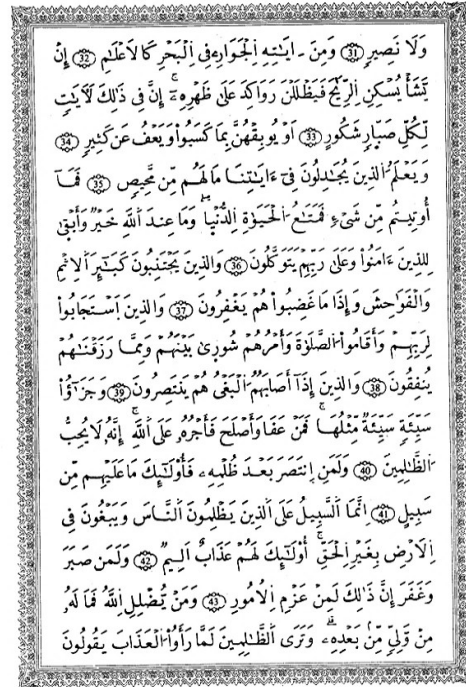 وَلَا نَصِيرٍ 31 وَمِنَ ـ ايَٰتِهِ اِ۬لْجَوَارِۦ فِے اِ۬لْبَحْرِ كَالَاعْلَٰمِ 32 إِنْ
يَّشَأْ يُسْكِنِ اِ۬لرِّيَٰحَ فَيَظْلَلْنَ رَوَاكِدَ عَلَىٰ ظَهْرِهِۦٓ إِنَّ فِے ذَٰلِكَ لَأٓيَٰتٖ
لِّكُلِّ صَبّ۪ارٖ شَكُورٍ 33 اَوْ يُوبِقْهُنَّ بِمَا كَسَبُواْ وَيَعْفُ عَن كَثِيرٖ 34
وَيَعْلَمُ اُ۬لذِينَ يُجَٰدِلُونَ فِےٓ ءَايَٰتِنَا مَا لَهُم مِّن مَّحِيصٖ 35 فَمَآ
أُوتِيتُم مِّن شَےْءٖ فَمَتَٰعُ اُ۬لْحَيَوٰةِ اِ۬لدُّنْي۪ا وَمَا عِندَ اَ۬للَّهِ خَيْرٞ وَأَبْقَىٰ
لِلذِينَ ءَامَنُواْ وَعَلَىٰ رَبِّهِمْ يَتَوَكَّلُونَ 36 وَالذِينَ يَجْتَنِبُونَ كَبَٰٓئِرَ اَ۬لِاثْمِ
وَالْفَوَٰحِشَ وَإِذَا مَا غَضِبُواْ هُمْ يَغْفِرُونَ 37 وَالذِينَ اَ۪سْتَجَابُواْ
لِرَبِّهِمْ وَأَقَامُواْ اُ۬لصَّلَوٰةَ وَأَمْرُهُمْ شُورَىٰ بَيْنَهُمْ وَمِمَّا رَزَقْنَٰهُمْ
يُنفِقُونَ 38 وَالذِينَ إِذَآ أَصَابَهُمُ اُ۬لْبَغْىُ هُمْ يَنتَصِرُونَ 39 وَجَزَٰٓؤُاْ
سَيِّئَةٖ سَيِّئَةٞ مِّثْلُهَا فَمَنْ عَفَا وَأَصْلَحَ فَأَجْرُهُۥ عَلَى اَ۬للَّهِ إِنَّهُۥ لَا يُحِبُّ
اُ۬لظَّٰلِمِينَ 40 وَلَمَنِ اِ۪نتَصَرَ بَعْدَ ظُلْمِهِۦ فَأُوْلَٰٓئِكَ مَا عَلَيْهِم مِّن
سَبِيلٍ 41 اِنَّمَا اَ۬لسَّبِيلُ عَلَى اَ۬لذِينَ يَظْلِمُونَ اَ۬لنَّاسَ وَيَبْغُونَ فِے
اِ۬لَارْضِ بِغَيْرِ اِ۬لْحَقِّ أُوْلَٰٓئِكَ لَهُمْ عَذَابٌ اَلِيمٞ 42 وَلَمَن صَبَرَ
وَغَفَرَ إِنَّ ذَٰلِكَ لَمِنْ عَزْمِ اِ۬لُامُورِ 43 وَمَنْ يُّضْلِلِ اِ۬للَّهُ فَمَا لَهُۥ
مِنْ وَّلِيّٖ مِّنۢ بَعْدِهِۦ وَتَرَى اَ۬لظَّٰلِمِينَ لَمَّا رَأَوُاْ اُ۬لْعَذَابَ يَقُولُونَ